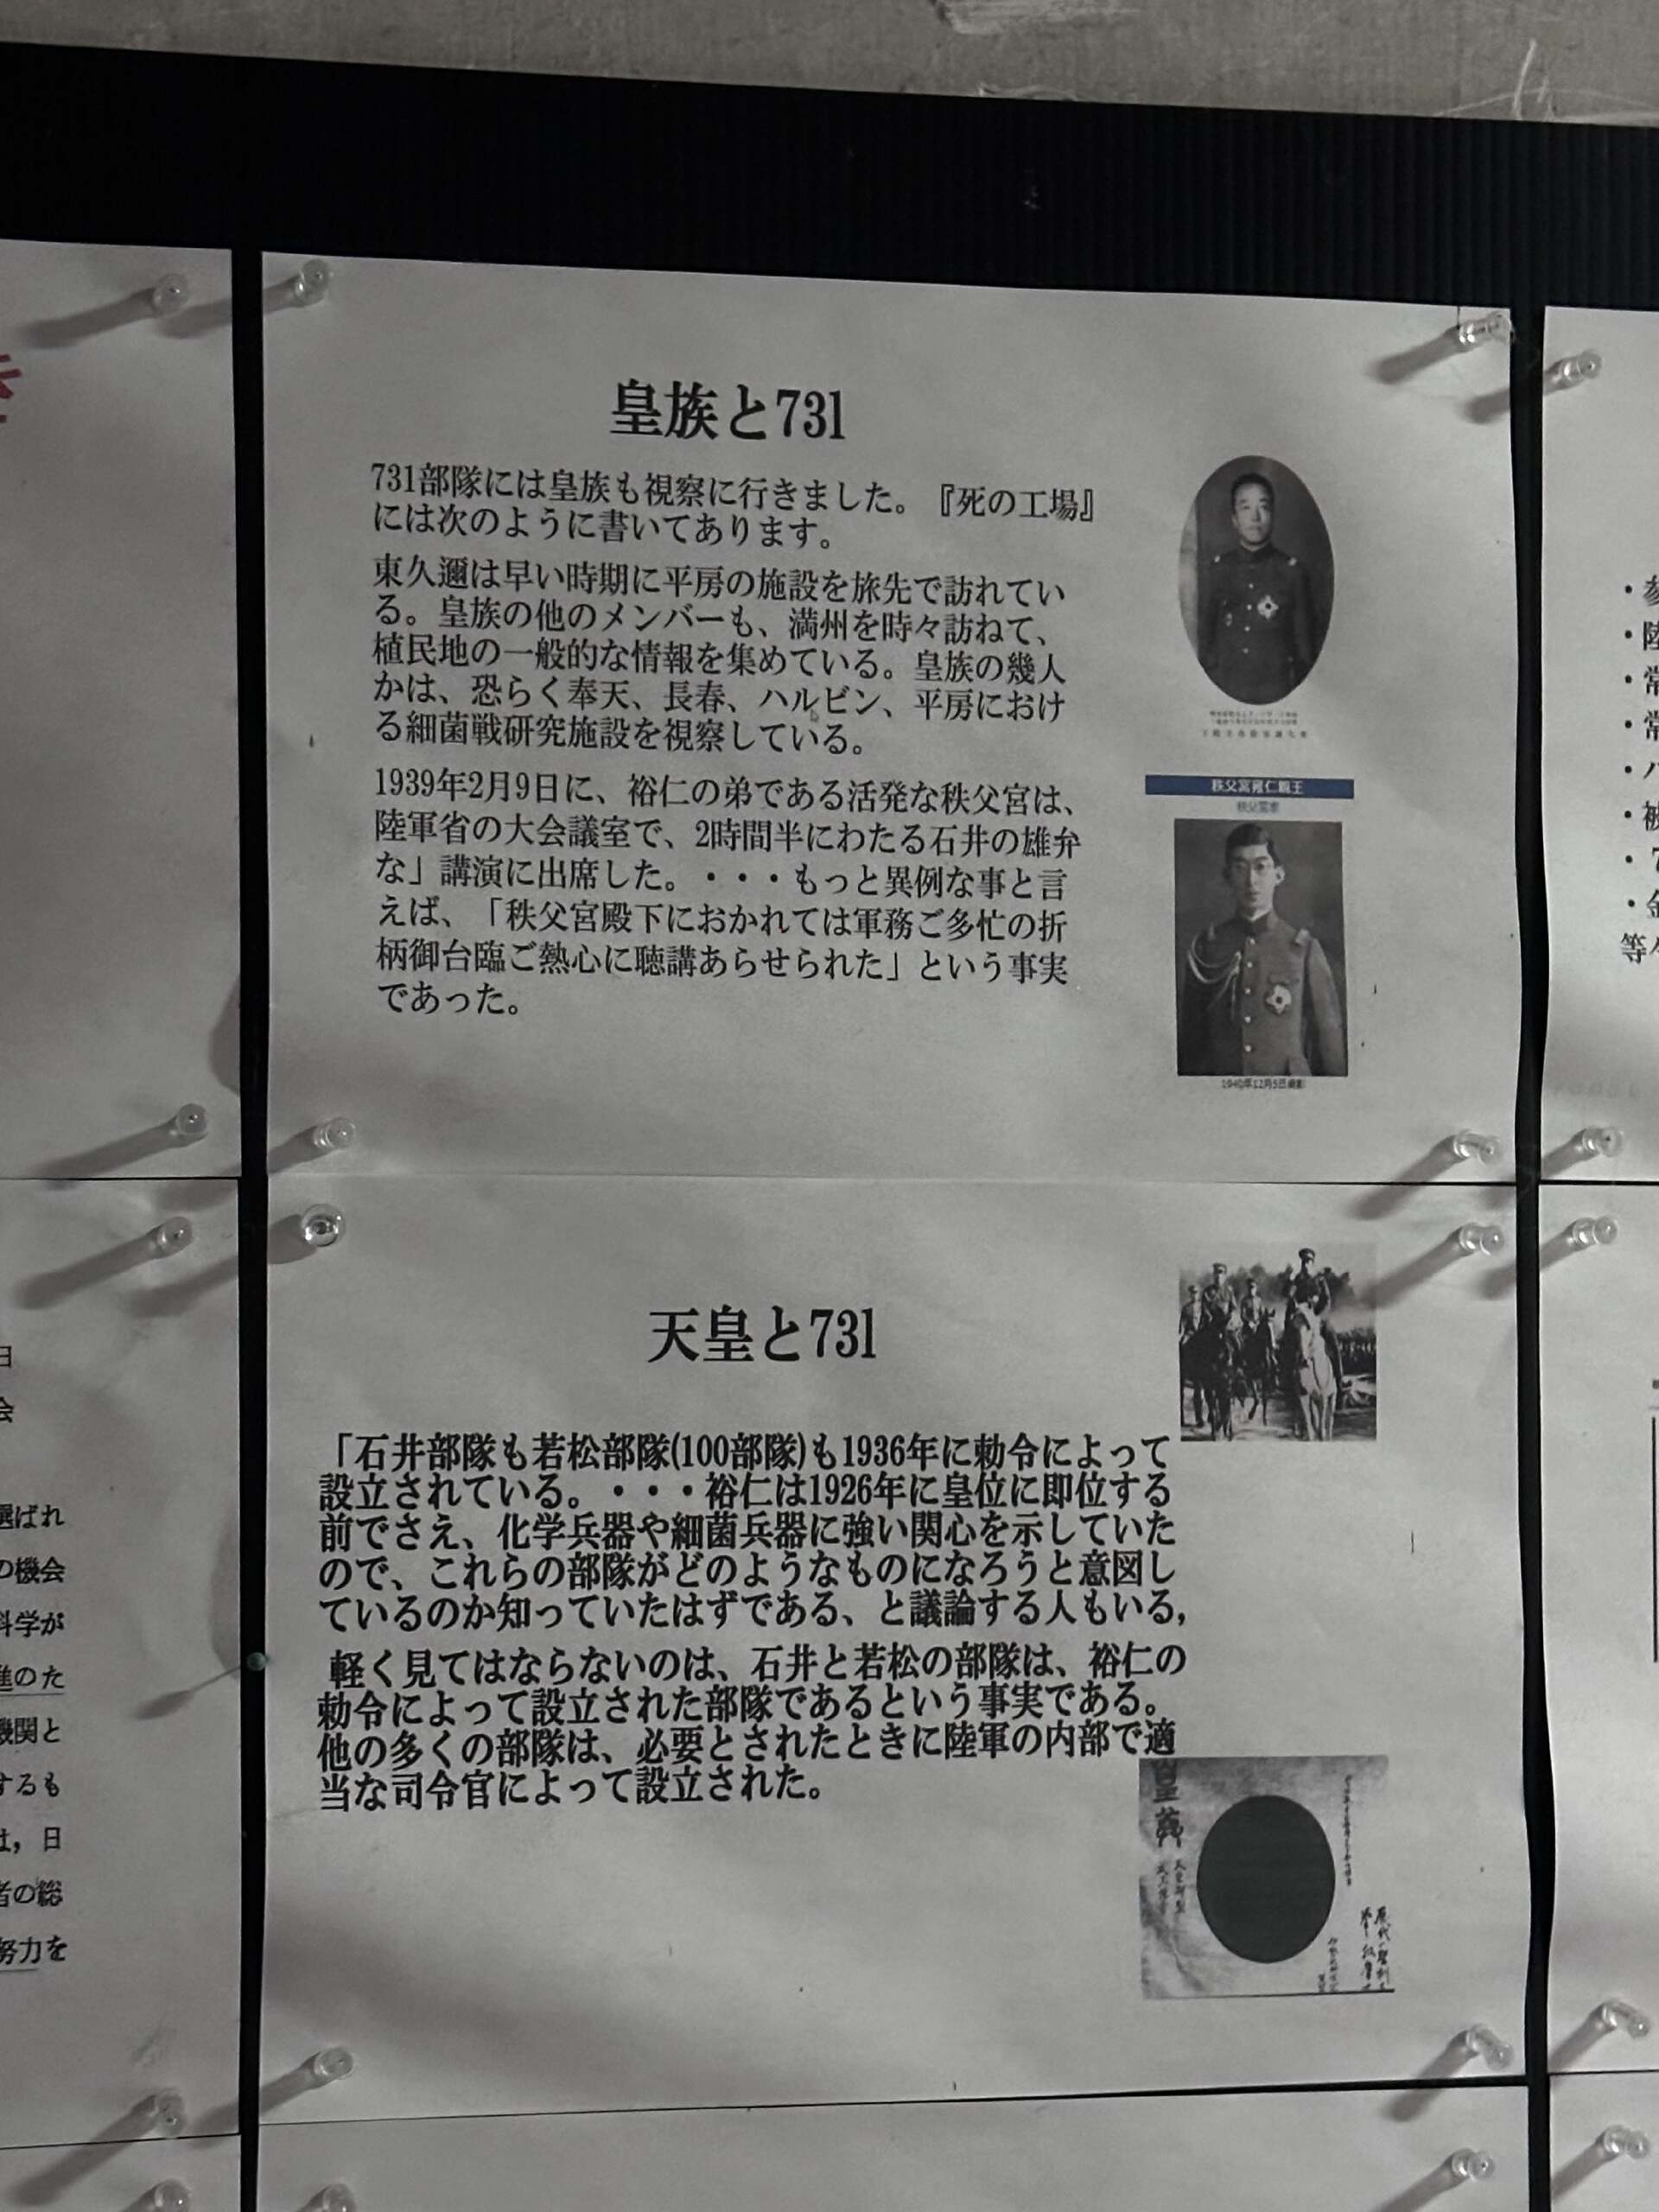 皇族と731
731部隊には皇族も視察に行きました。『死の工場』
には次のように書いてあります。
東久邇は早い時期に平房の施設を旅先で訪れてい
る。皇族の他のメンバーも、満州を時々訪ねて、
植民地の一般的な情報を集めている。皇族の幾人
かは、恐らく奉天、長春、ハルビン、平房におけ
る細菌戦研究施設を視察している。
1939年2月9日に、裕仁の弟である活発な秩父宮は、
陸軍省の大会議室で、2時間半にわたる石井の雄弁
な」講演に出席した。・・・もっと異例な事と言
えば、「秩父宮殿下におかれては軍務ご多忙の折
柄御台臨ご熱心に聴講あらせられた」という事実
であった。
秩父宮雍仁親王
1940年12月5日撮影
天皇と731
「石井部隊も若松部隊(100部隊)も1936年に勅令によって
設立されている。・・・裕仁は1926年に皇位に即位する
前でさえ、化学兵器や細菌兵器に強い関心を示していた
ので、これらの部隊がどのようなものになろうと意図し
ているのか知っていたはずである、と議論する人もいる,
軽く見てはならないのは、石井と若松の部隊は、裕仁の
勅令によって設立された部隊であるという事実である。
他の多くの部隊は、必要とされたときに陸軍の内部で適
当な司令官によって設立された。
日
会
選ばれ
の機会
科学が
進のた
機関と
するも
は，日
者の総
努力を
等々